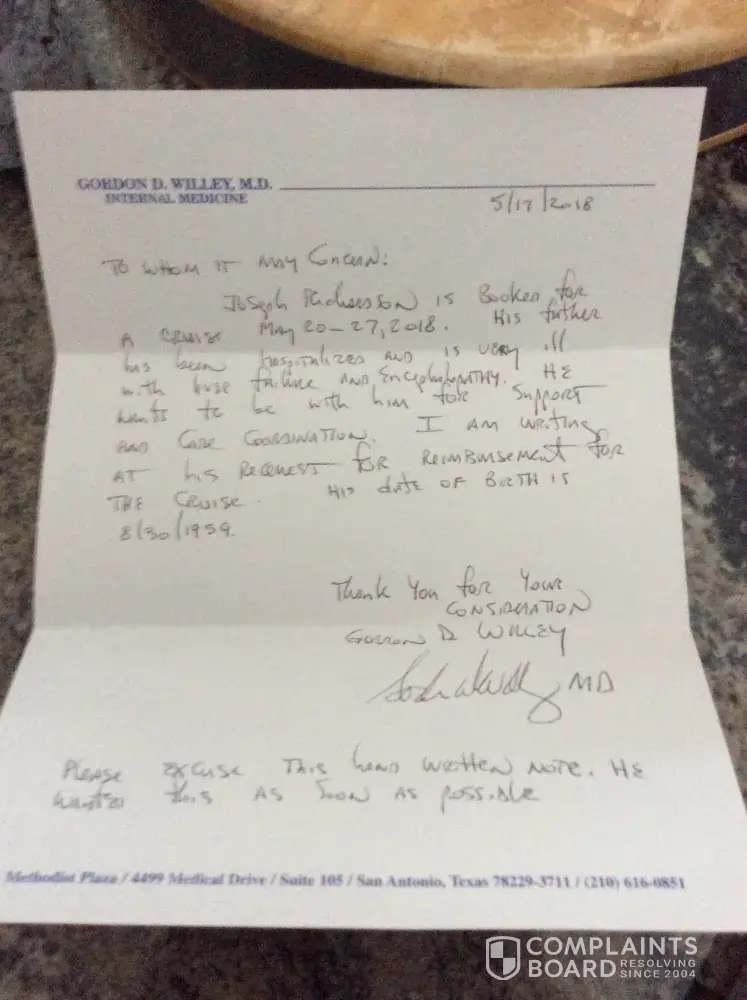 GORDON D. WILLEY, M.D.
INTERNAL MEDICINE
5/17/2018
TO WHOM IT MAY CONCERN:
JOSEPH Richardson IS BOOKED for
A CRUISE MAY 20-27, 2018. HIS father
has been hospitalized AND is very ill
with failure AND Encephalopathy. HE
wants to be with him for support
AND CARE COORDINATION. I AM WRITING
AT his REQUEST for REIMBURSEMENT FOR
THE CRUISE. HIS date OF BIRTH IS
8/30/1959.
Thank You for Your
CONSIDERATION
GORDON D WILLEY
MD
Please EXCUSE THIS hand WRITTEN NOTE. HE
wanted this AS Soon AS possible
Methodist Plaza / 4499 Medical Drive / Suite 105 / San Antonio, Texas 78229-3711 / (210) 616-0851
COMPLAINTS
BOARD RESOLVING
SINCE 2004